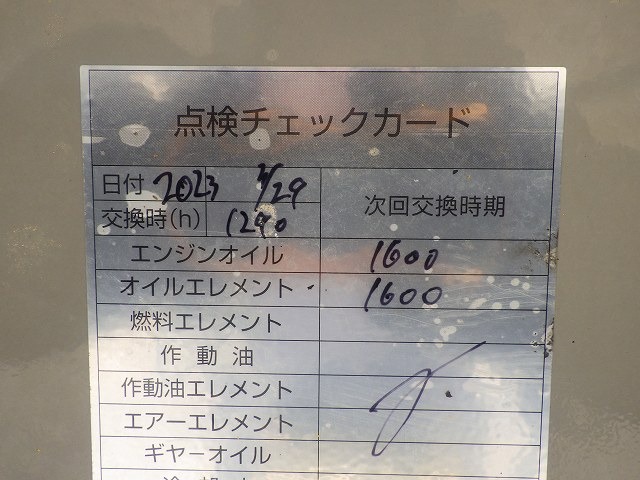 点検チェックカード
日付 2023 /29
次回交換時期
交換時(h) 1290
エンジンオイル 1600
オイルエレメント 1600
燃料エレメント
作動油
作動油エレメント
エアーエレメント
ギヤーオイル